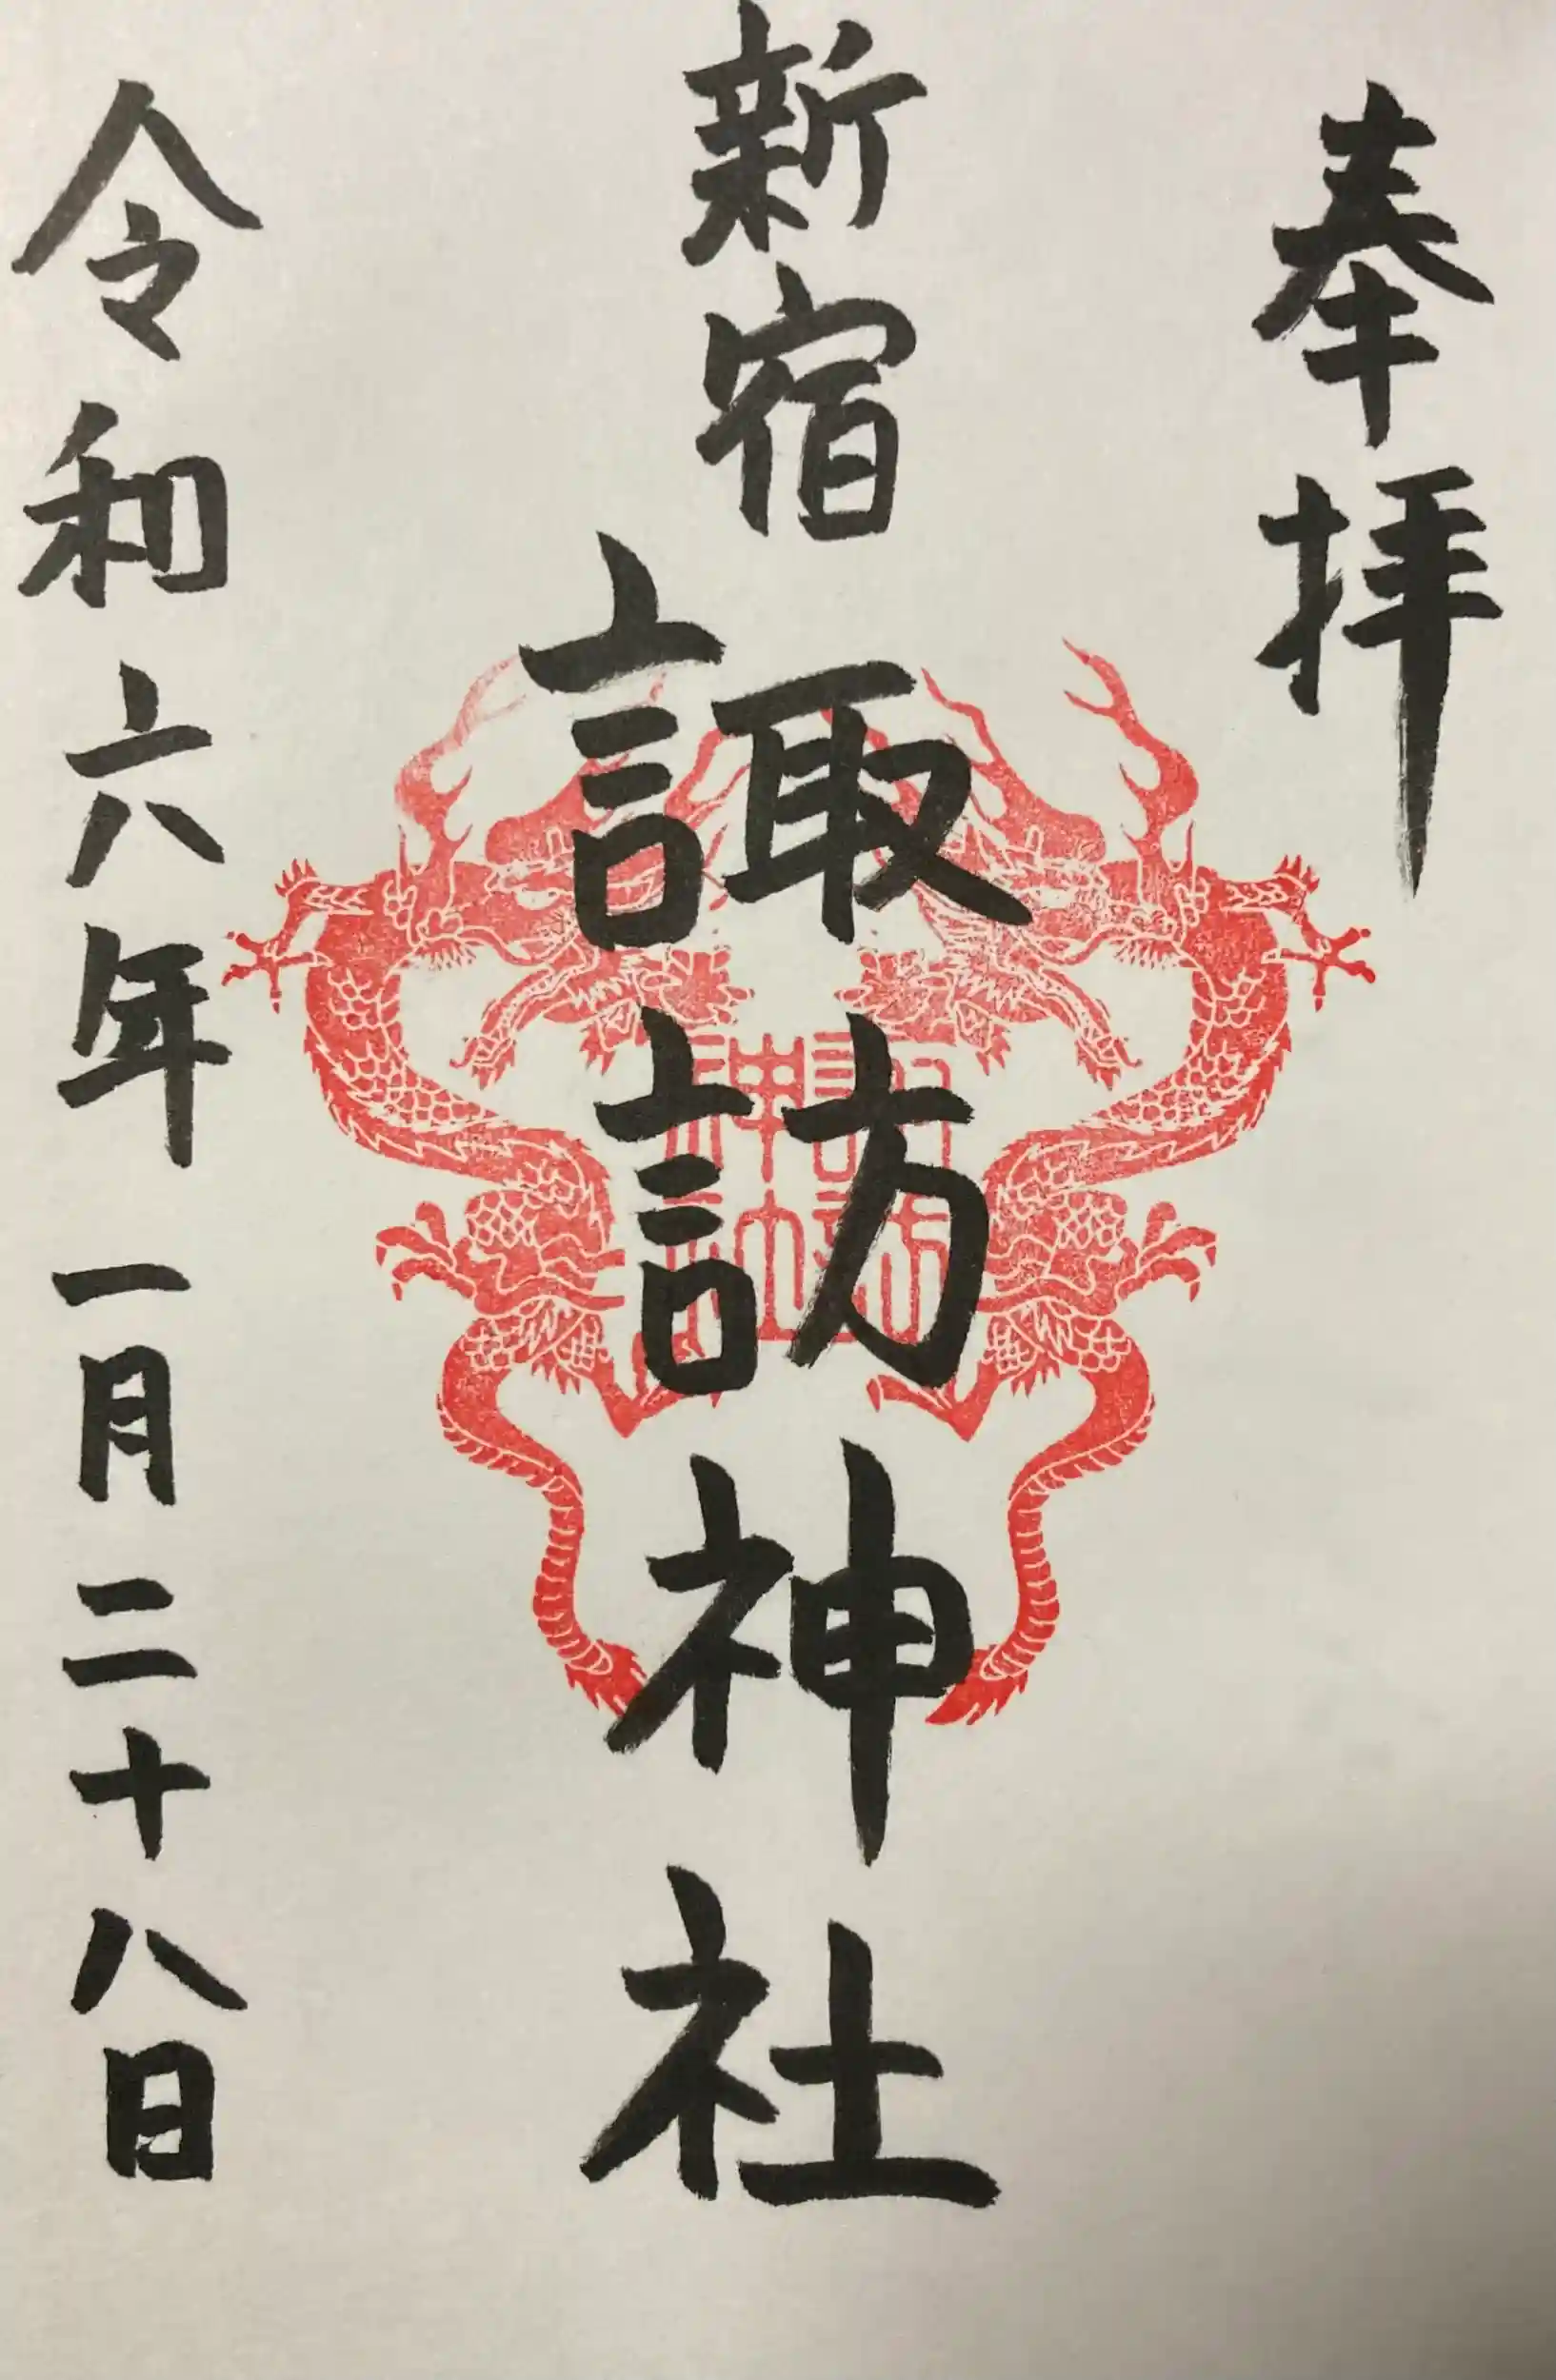 奉拝
新宿
諏訪神社
令和六年一月二十八日
諏訪
神社